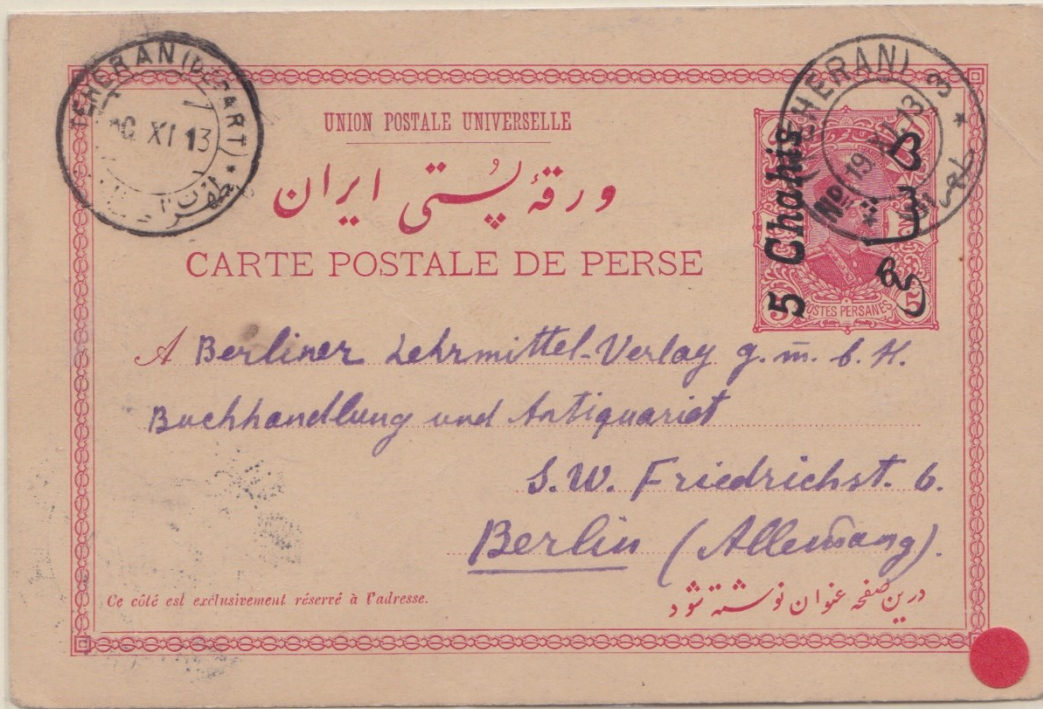 TEHERAN (DEPART)
XI 13
طهران
UNION POSTALE UNIVERSELLE
ورقهٔ پستی ایران
CARTE POSTALE DE PERSE
5 Chahis
(TEHERAN) 3
No 1
19 XI 13
طهران
5
POSTES PERSANES
5
A Berliner Lehrmittel-Verlag g. m. b. H.
Buchhandlung und Antiquariat
S. W. Friedrichst. 6.
Berlin (Allemang).
Ce côté est exclusivement réservé à l'adresse.
درین صفحه عنوان نوشته شود